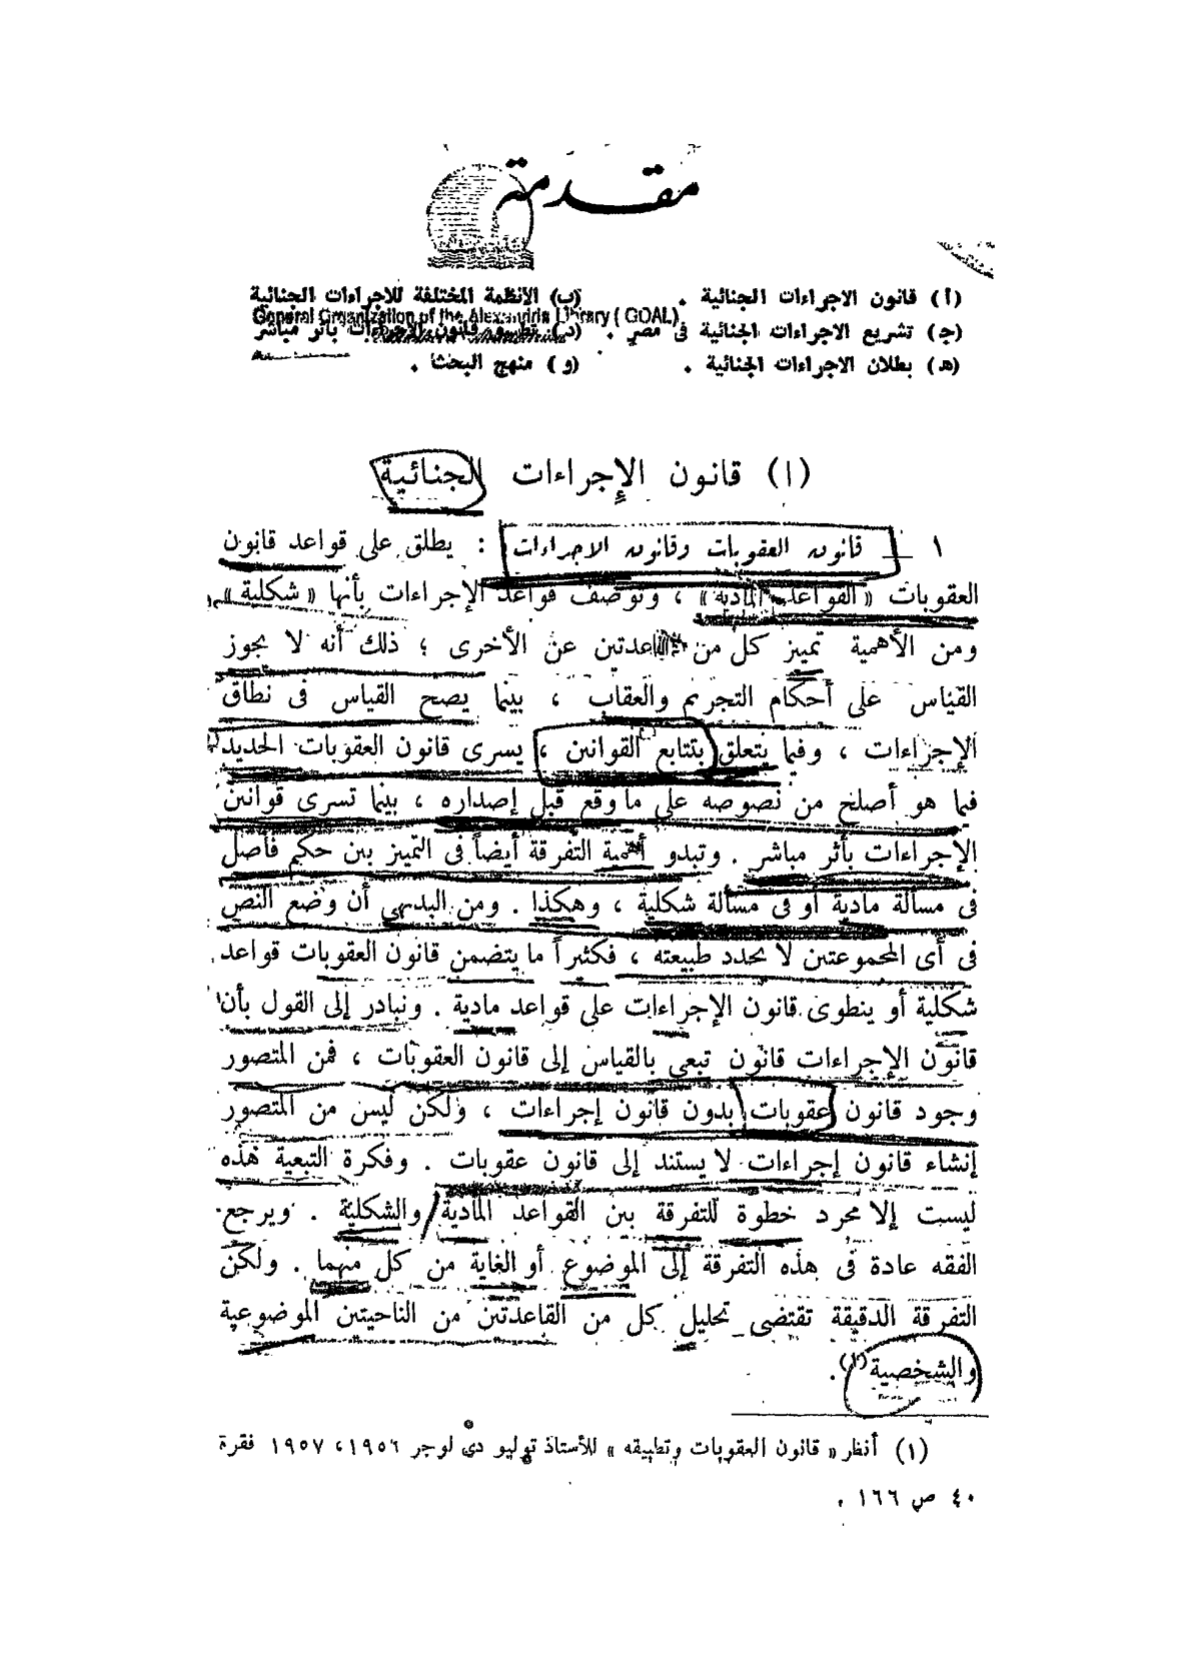 مقدمة
(أ) قانون الاجراءات الجنائية . (ب) الأنظمة المختلفة للاجراءات الجنائية
General Organization of the Alexandria Library ( GOAL)
(ج) تشريع الاجراءات الجنائية فى مصر . (د) تطبيق قانون الاجراءات بأثر مباشر
(ه) بطلان الاجراءات الجنائية . (و) منهج البحث .
(ا) قانون الإجراءات الجنائية
١ — قانون العقوبات وقانون الاجراءات : يطلق على قواعد قانون
العقوبات « القواعد المادية » ، وتوصف قواعد الإجراءات بأنها « شكلية » ،
ومن الأهمية تمييز كل من القاعدتين عن الأخرى ؛ ذلك أنه لا يجوز
القياس على أحكام التجريم والعقاب ، بينما يصح القياس فى نطاق
الإجراءات ، وفيما يتعلق بتتابع القوانين ، يسرى قانون العقوبات الجديد
فيما هو أصلح من نصوصه على ما وقع قبل إصداره ، بينما تسرى قوانين
الإجراءات بأثر مباشر . وتبدو أهمية التفرقة أيضاً فى التمييز بين حكم فاصل
فى مسألة مادية أو فى مسألة شكلية ، وهكذا . ومن البديهى أن وضع النص
فى أى المجموعتين لا يحدد طبيعته ، فكثيراً ما يتضمن قانون العقوبات قواعد
شكلية أو ينطوى قانون الإجراءات على قواعد مادية . ونبادر إلى القول بأن
قانون الإجراءات قانون تبعى بالقياس إلى قانون العقوبات ، فمن المتصور
وجود قانون عقوبات بدون قانون إجراءات ، ولكن ليس من المتصور
إنشاء قانون إجراءات لا يستند إلى قانون عقوبات . وفكرة التبعية هذه
ليست إلا مجرد خطوة للتفرقة بين القواعد المادية والشكلية . ويرجع
الفقه عادة فى هذه التفرقة إلى الموضوع أو الغاية من كل منهما . ولكن
التفرقة الدقيقة تقتضى تحليل كل من القاعدتين من الناحيتين الموضوعية
والشخصية (١) .
(١) أنظر « قانون العقوبات وتطبيقه » للأستاذ توليو دى لوجر ١٩٥٦، ١٩٥٧ فقرة
٤٠ ص ١٦٦ .